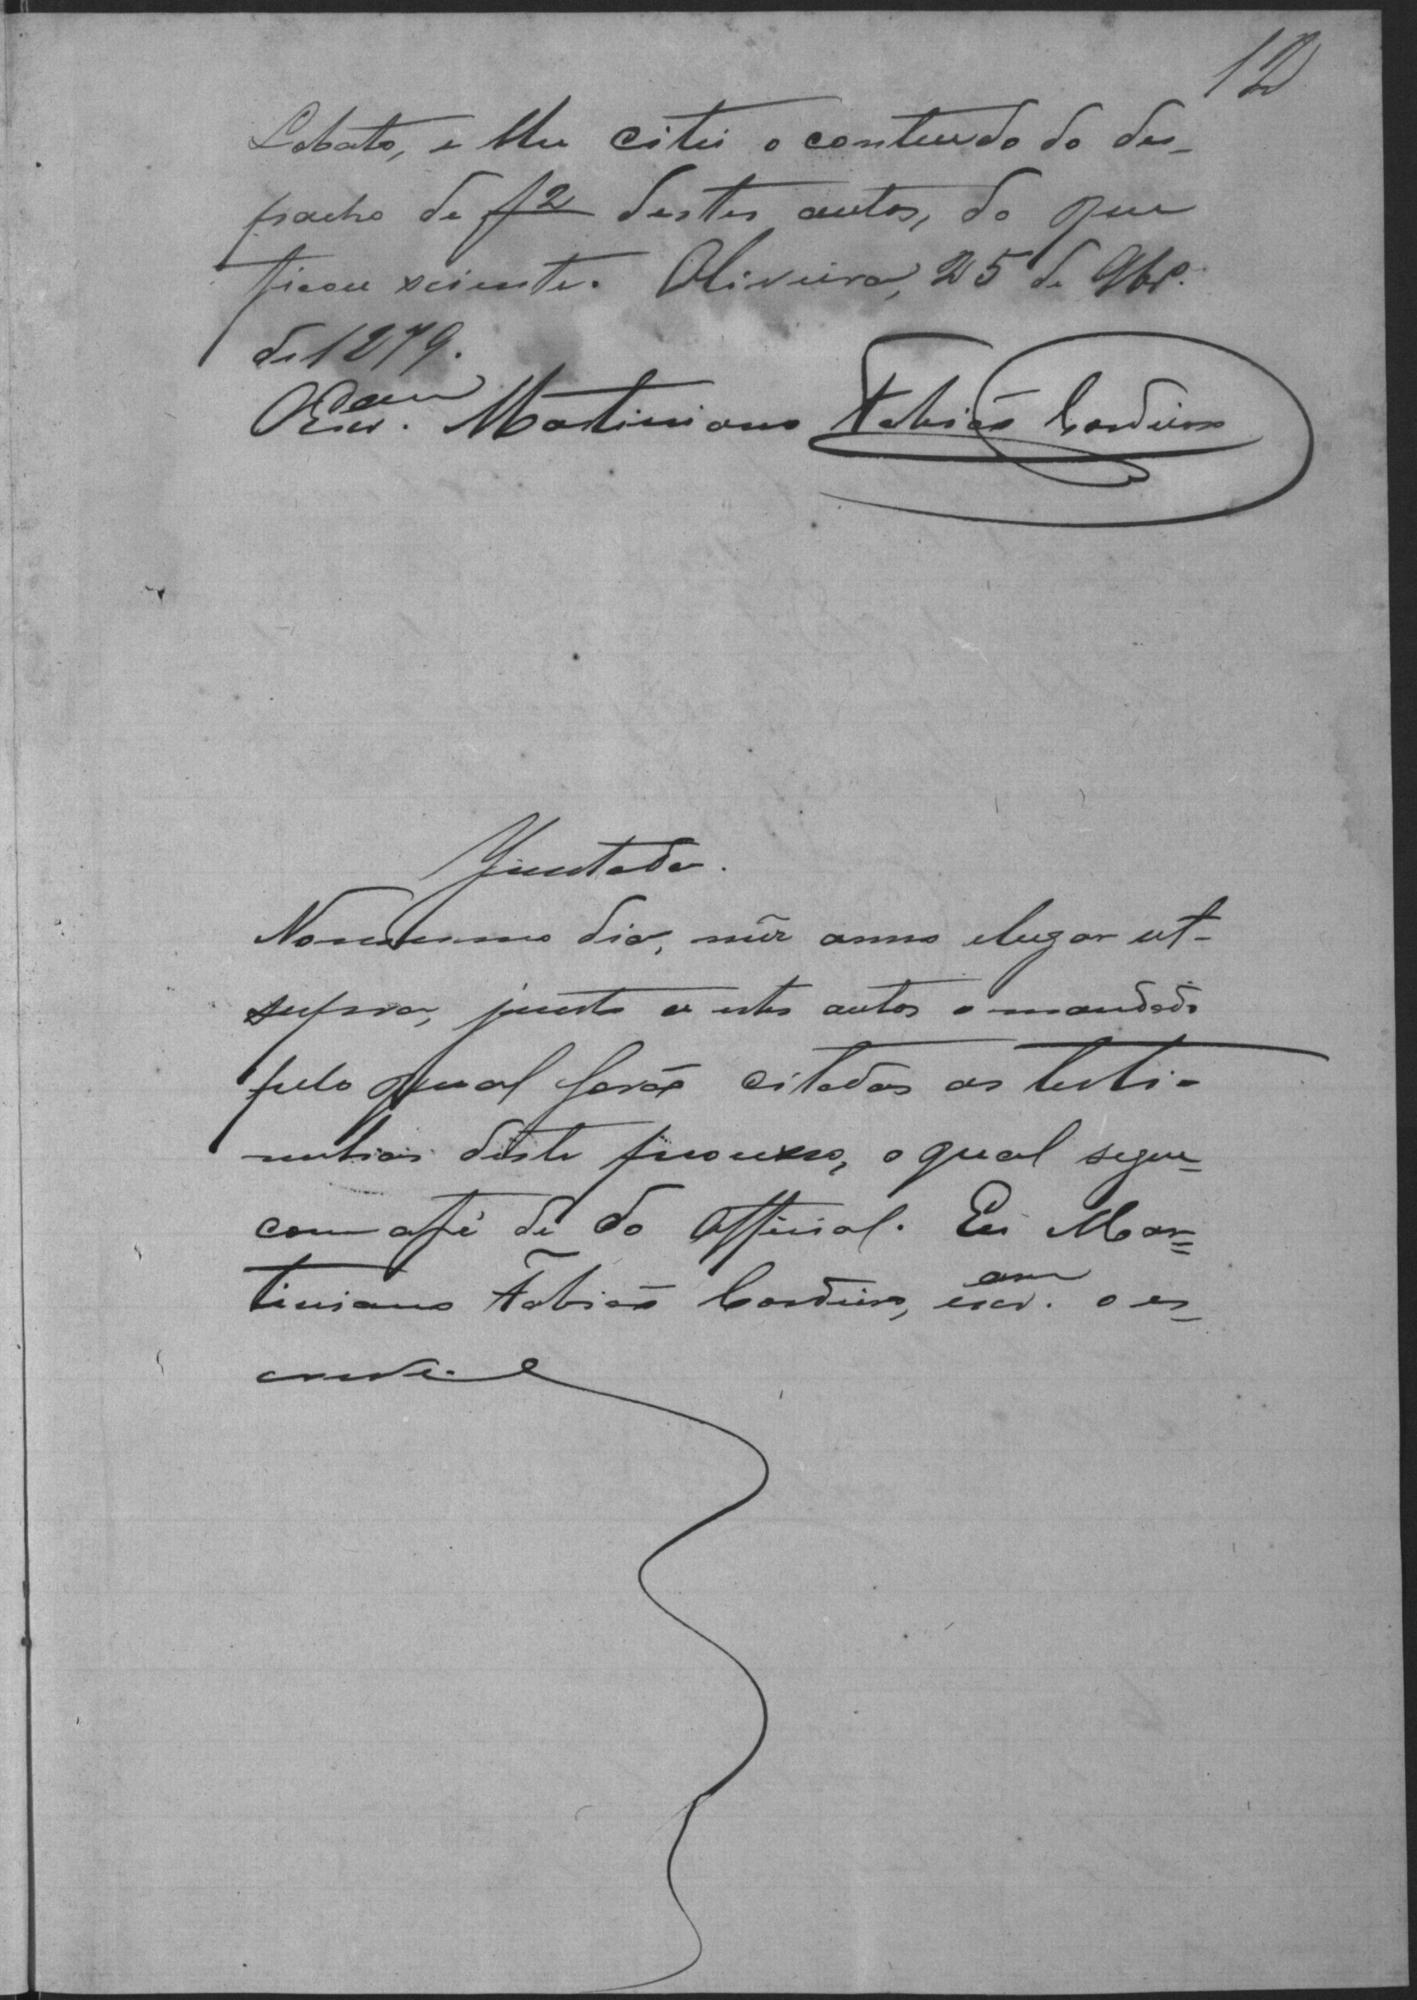 12
Lobato, e lhe citei o conteudo do des-
pacho de f2 destes autos, do que
ficou sciente. Oliveira, 25 de 9br.º
de 1879.
O Escr.am Martiniano Fabião Cordeiro
Juntada.
No mesmo dia, mez anno e lugar ut-
supra, junto a estes autos o mandado
pelo qual forão citadas as teste-
munhas deste processo, o qual segue
com a fé de do Official. Eu Mar=
tiniano Fabião Cordeiro, escr.am o es-
crevi.